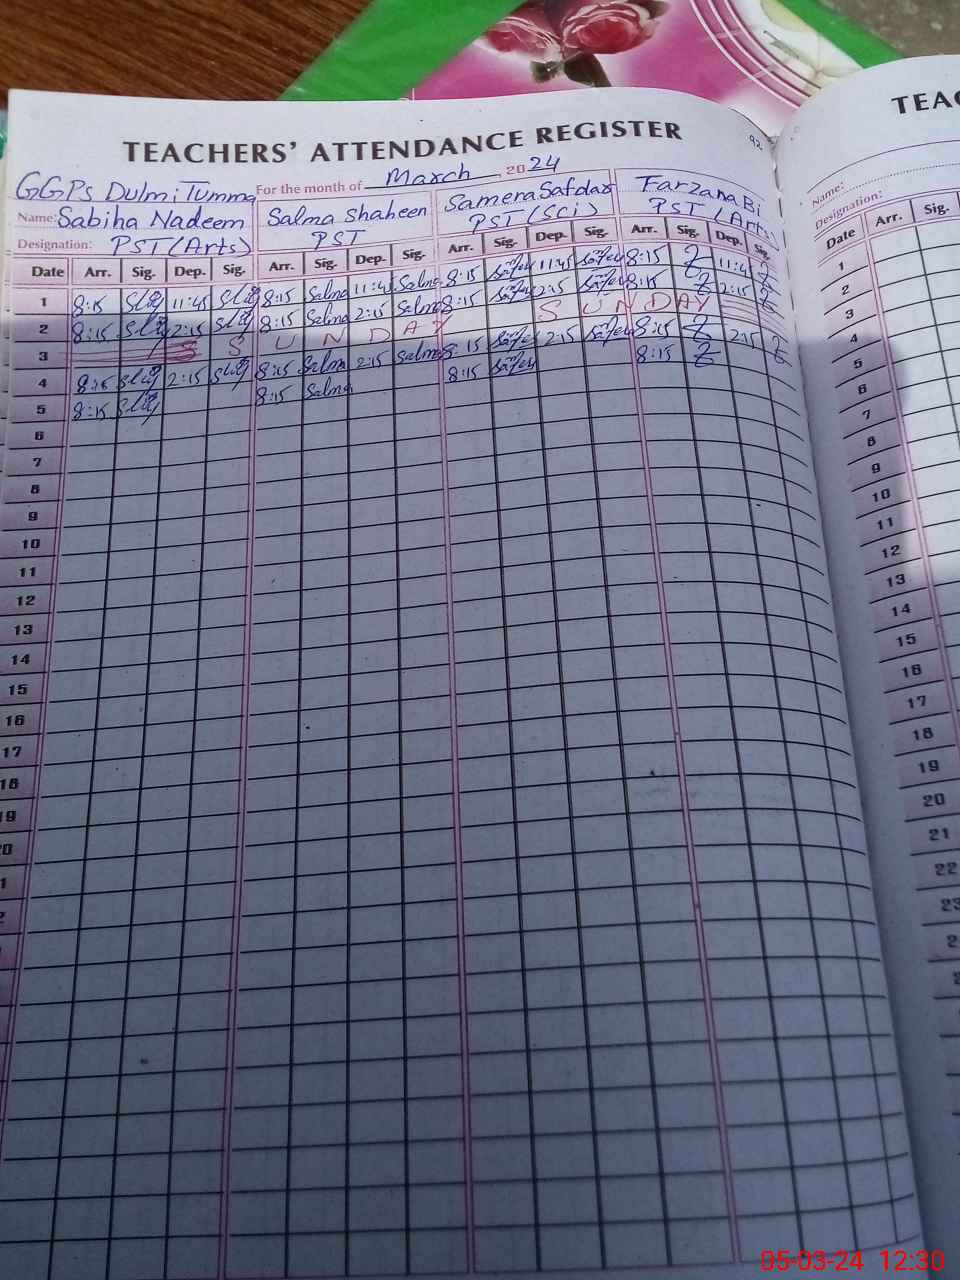 TEACHERS' ATTENDANCE REGISTER
92
GGPS Dulmi Tumma For the month of March, 2024
Name: Sabiha Nadeem Salma Shaheen Samera Safdar Farzana Bi
Designation: PST (Arts) PST PST (Sci) PST (Arts)
Date Arr. Sig. Dep. Sig. Arr. Sig. Dep. Sig. Arr. Sig. Dep. Sig. Arr. Sig. Dep. Sig.
1 8:15 11:45 8:15 Salma 11:45 Salma 8:15 11:45 8:15 11:45
2 8:15 2:15 8:15 Salma 2:15 Salma 8:15 2:15 8:15 2:15
3 SUNDAY SUNDAY
4 8:15 2:15 8:15 Salma 2:15 Salma 8:15 2:15 8:15 2:15
5 8:15 8:15 Salma 8:15 8:15
6
7
8
9
10
11
12
13
14
15
16
17
18
19
TEAC
Name:
Designation:
Date Arr. Sig.
1
2
3
4
5
6
7
8
9
10
11
12
13
14
15
16
17
18
19
20
21
22
23
05-03-24 12:30